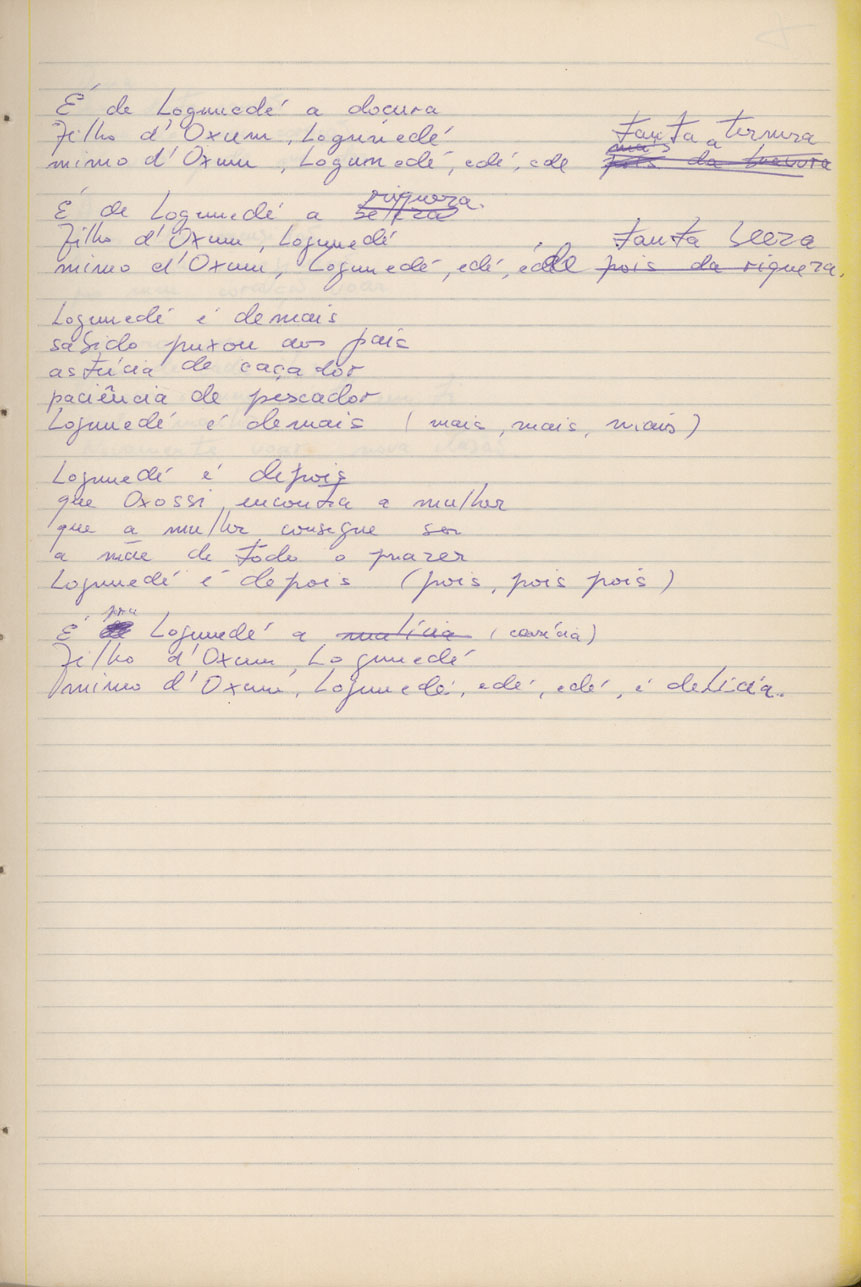 É de Logunedé a docura
Filho d'Oxum, Logunedé
tanta ternura
mimo d'Oxum, Logunedé, edé, ede
mais a
pois da bravura
riqueza.
É de Logunedé a beleza
Filho d'Oxum, Logunedé
tanta beleza
mimo d'Oxum, Logunedé, edé, edé pois da riqueza.
Logunedé é demais
sabido puxou aos pais
astúcia de caçador
paciência de pescador
Logunedé é demais (mais, mais, mais)
Logunedé é depois
que Oxossi encontra a mulher
que a mulher consegue ser
a mãe de todo o prazer
Logunedé é depois (pois, pois pois)
pra
É Logunedé a malícia (carícia)
Filho d'Oxum, Logunedé
mimo d'Oxum, Logunedé, edé, edé, é delícia.